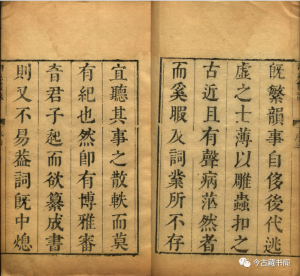 既繁韻事自侈後代逃
虛之士薄以雕蟲扣之
古近且有聲病茫然者
而奚暇及詞業所不存
宜聽其事之散軼而莫
有紀也然卽有博雅審
音君子起而欲纂成書
則又不易葢詞旣中熄
今古藏书院